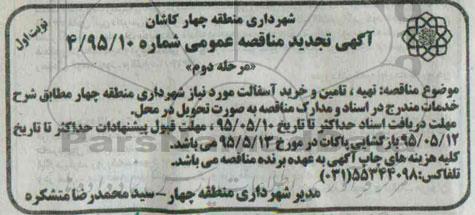 نوبت اول
شهرداری منطقه چهار کاشان
آگهی تجدید مناقصه عمومی شماره ۴/۹۵/۱۰
«مرحله دوم»
موضوع مناقصه: تهیه ، تامین و خرید آسفالت مورد نیاز شهرداری منطقه چهار مطابق شرح
خدمات مندرج در اسناد و مدارک مناقصه به صورت تحویل در محل.
مهلت دریافت اسناد حداکثر تا تاریخ ۹۵/۰۵/۱۰ ، مهلت قبول پیشنهادات حداکثر تا تاریخ
۹۵/۰۵/۱۲ بازگشایی پاکات در مورخ ۹۵/۵/۱۳ می باشد.
کلیه هزینه های چاپ آگهی به عهده برنده مناقصه می باشد.
تلفاکس: ۵۵۳۴۴۰۹۸(۰۳۱)
مدیر شهرداری منطقه چهار – سید محمدرضا متشکره